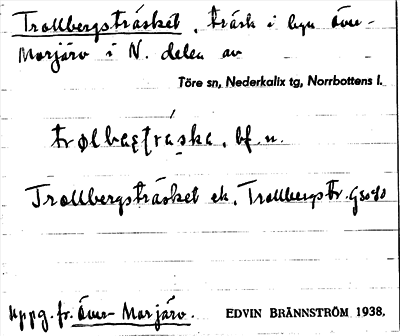 Trollbergsträsket, träsk i byn Över-
Morjärv i N. delen av
Töre sn, Nederkalix tg, Norrbottens l.
bf. n.
Trollbergsträsket ek. Trollbergstr. Gso
Uppg. fr. Över-Morjärv. EDVIN BRÄNNSTRÖM 1938.